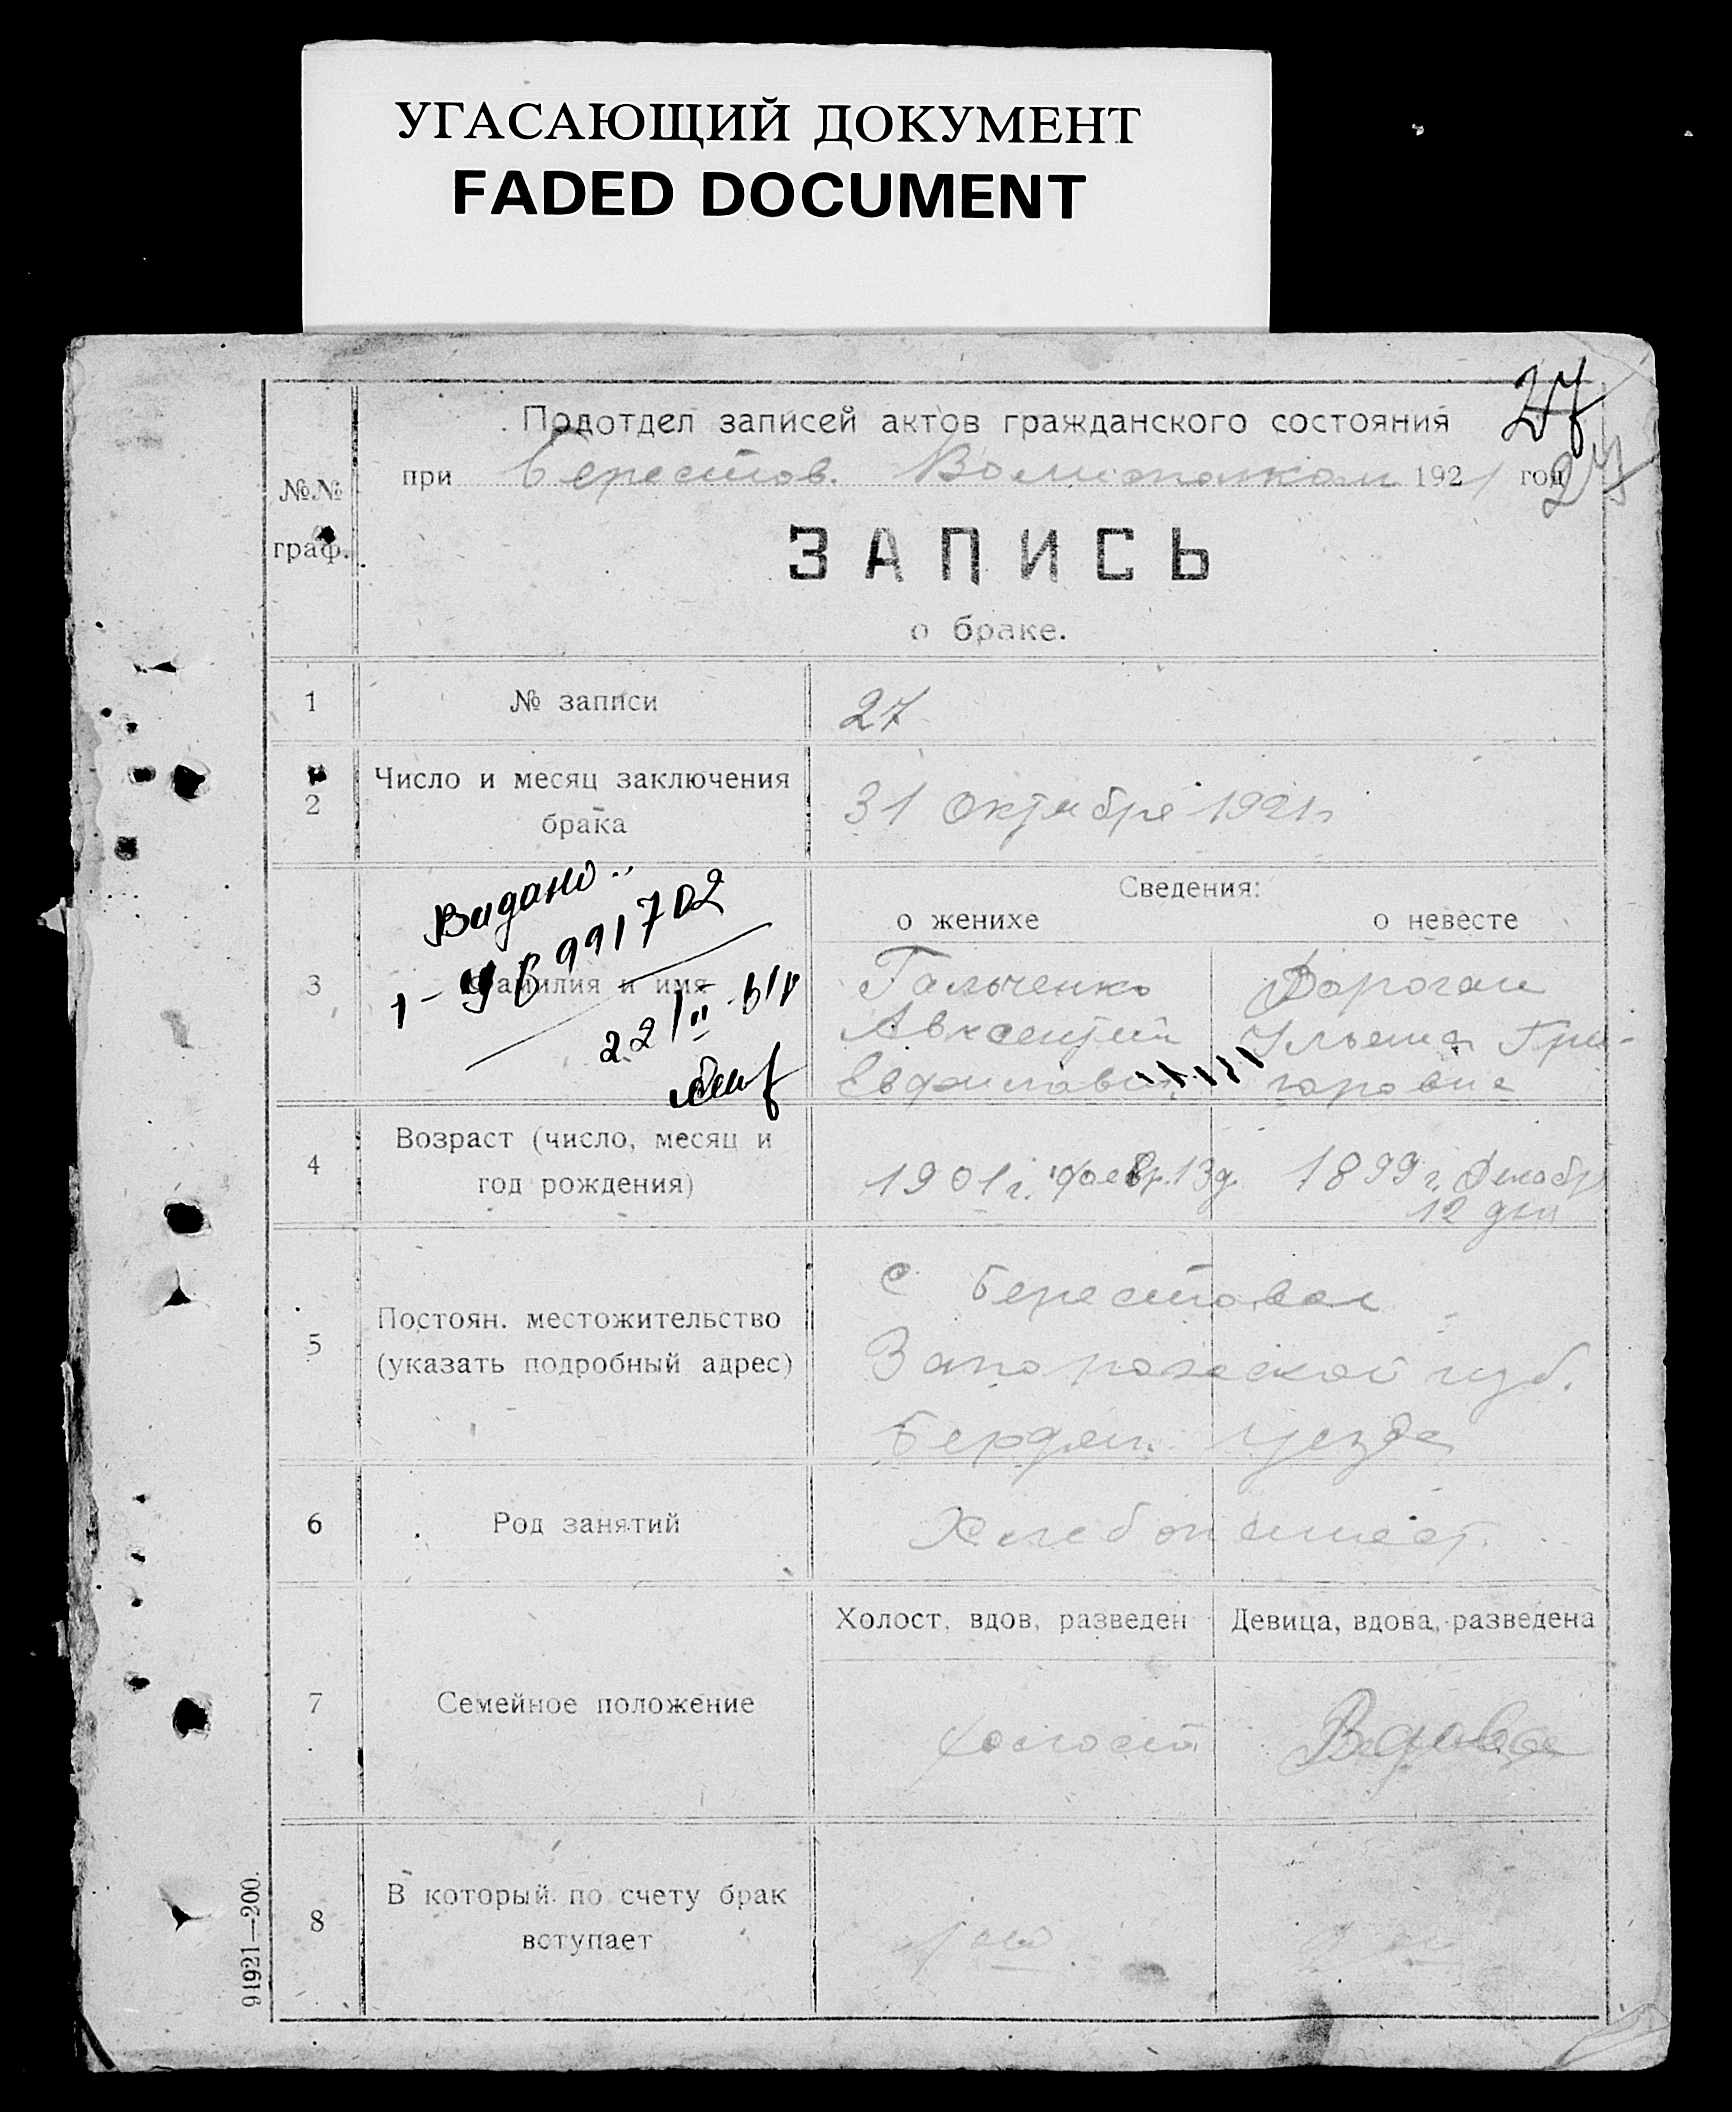 УГАСАЮЩИЙ ДОКУМЕНТ
FADED DOCUMENT
27
Подотдел записей актов гражданского состояния
при Берестов. Волисполком 1921 год
27
№№
граф.
ЗАПИСЬ
о браке.
1 № записи 27
2 Число и месяц заключения
брака
31 Октября 1921 г
Сведения:
о женихе о невесте
3 Фамилия и имя
Видано
991702
22/II
Гальченко
Авксентий
Дороган
Ульяна Гри-
горовна
4 Возраст (число, месяц и
год рождения)
1901 г. Ноябр. 13 д.
1899 г. Декабр
12 дня
5 Постоян. местожительство
(указать подробный адрес)
С Берестовое
Запорожской губ.
Бердян. уезда
6 Род занятий
Хлебопашест.
Холост, вдов, разведен Девица, вдова, разведена
7 Семейное положение
холост Вдова
8 В который по счету брак
вступает
91921—200.